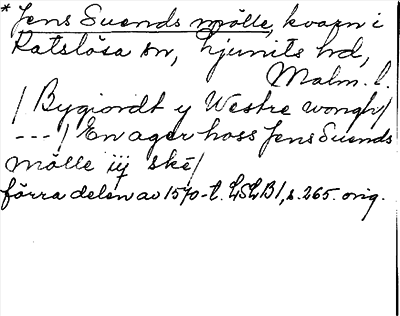 * Jens Suends mölle, kvarn i
Katslösa sn, Ljunits hd,
Malm. l.
/ Bygiordt y Westre wongh/
---/ En ager hoss Jens Suends
mölle iij ske/
förra delen av 1570-t. LSLB1, s. 265. orig.